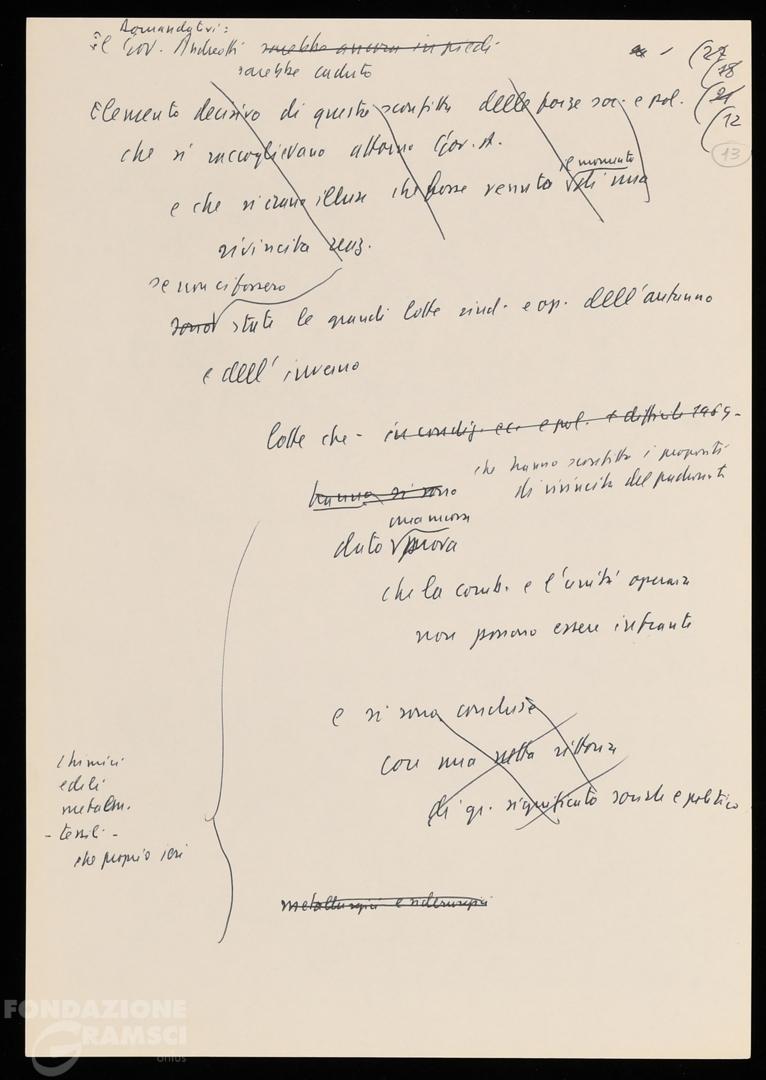 Domandatevi:
il Gov. Andreotti sarebbe ancora in piedi
sarebbe caduto
(27
(18
(21
(12
13
Elemento decisivo di questa sconfitta delle forze soc. e pol.
che si raccoglievano attorno Gov. A.
il momento
e che si erano illuse che fosse venuto di una
rivincita reaz.
se non ci fossero
sono state le grandi lotte sind. e op. dell'autunno
e dell'inverno
lotte che - in condiz. ec. e pol. + difficili 1969-
che hanno sconfitto i propositi
hanno si sono
di rivincita del padronato
una nuova
dato prova
che la comb. e l'unità operaia
non possono essere infrante
e si sono concluse
con una netta vittoria
di gr. significato sociale e politico
chimici
edili
metalm.
- tessili -
che proprio ieri
metallurgici e siderurgici
FONDAZIONE
GRAMSCI
onlus